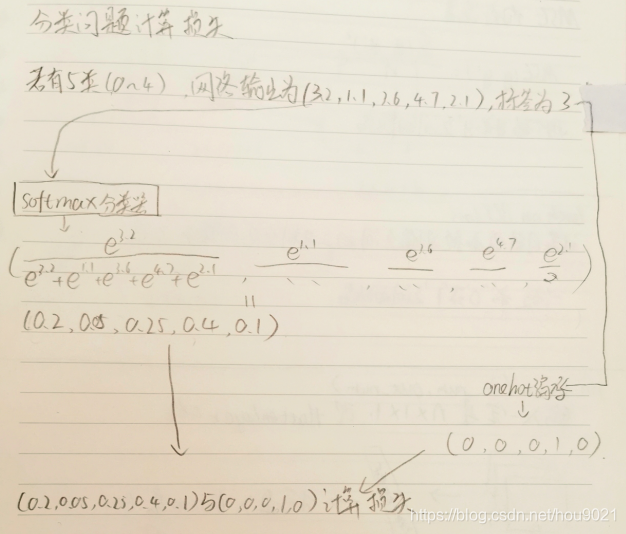 分类问题计算损失
若有5类(0~4),网络输出为(3.2,1.1,3.6,4.7,2.1),标签为3
softmax分类器
e^3.2 / (e^3.2+e^1.1+e^3.6+e^4.7+e^2.1) , e^1.1 , e^3.6 , e^4.7 , e^2.1
=
(0.2,0.05,0.25,0.4,0.1)
onehot编码
(0,0,0,1,0)
(0.2,0.05,0.25,0.4,0.1)与(0,0,0,1,0)计算损失
https://blog.csdn.net/hou9021